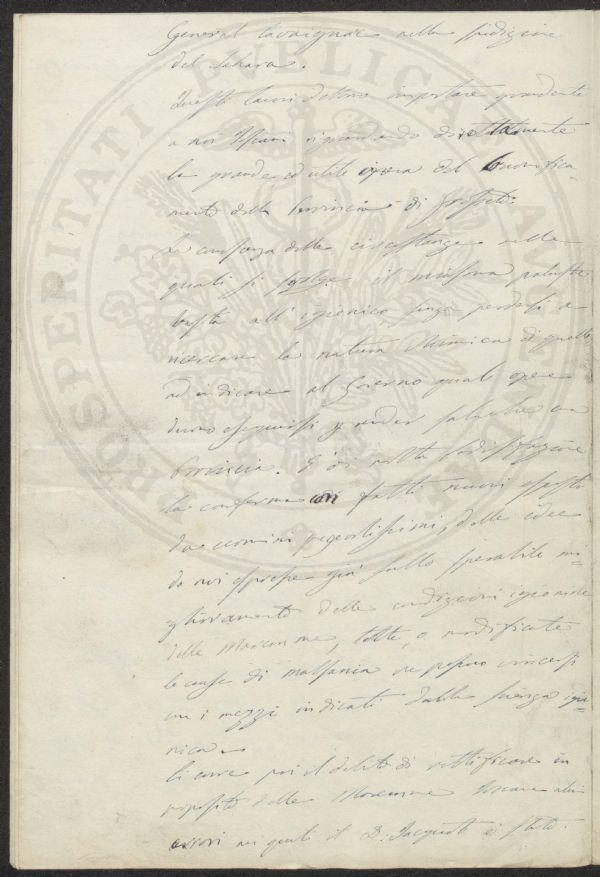 General Cavaignac nella spedizione
del Sahara.
Questi lavori debbono importare grandemente
a noi Toscani riguardando direttamente
la grande ed utile opera del bonifica-
mento della Provincia di Grosseto.
La conoscenza delle circostanze nelle
quali si svolge il miasma palustre
basta all'igienico senza perdersi a
ricercare la natura chimica di quello
ad indicare al Governo quali opere
devono eseguirsi per render salubre una
Provincia. È di molta sodisfazione
la conferma con fatti nuovi esposti
da uomini pregevolissimi, delle idee
da noi espresse già sullo sperabile mi-
glioramento delle condizioni igieniche
delle Maremme, tolte, o modificate
le cause di malsania che possono vincersi
con i mezzi indicati dalla scienza igie-
nica.
Ci corre poi il debito di rettificare in
proposito delle Maremme toscane alcuni
errori nei quali il D. Jacquot è stato
PROSPERITATI PUBLICAE